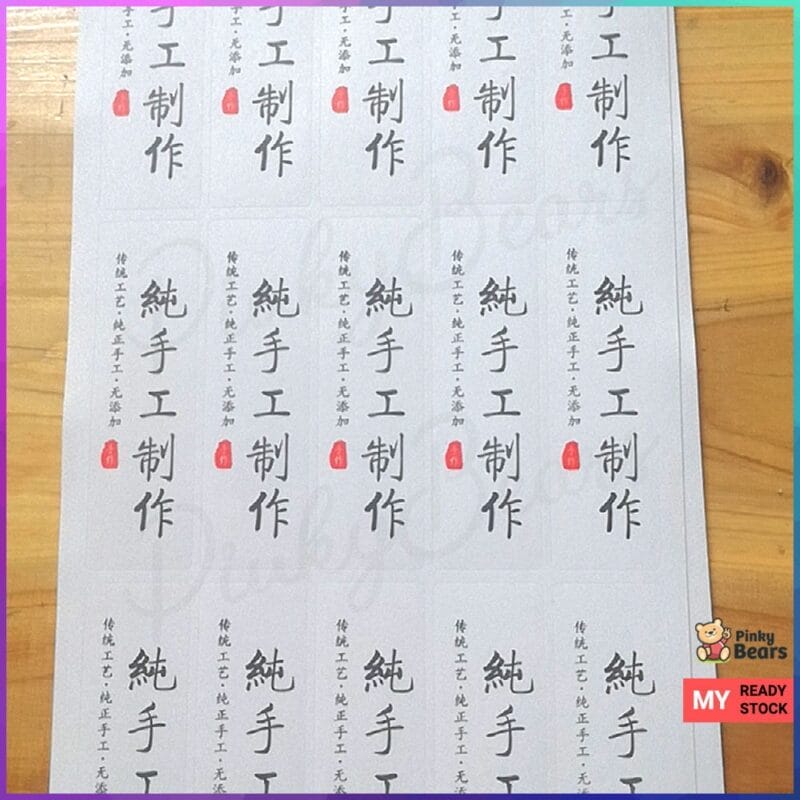 工制作
无添加
手作
工制作
无添加
手作
工制作
无添加
手作
工制作
无添加
手作
工制作
无添加
手作
純手工制作
传统工艺·纯正手工·无添加
手作
純手工制作
传统工艺·纯正手工·无添加
手作
純手工制作
传统工艺·纯正手工·无添加
手作
純手工制作
传统工艺·纯正手工·无添加
手作
純手工制作
传统工艺·纯正手工·无添加
手作
純手工
传统工艺·纯正手工·无
純手工
传统工艺·纯正手工·无
純手工
传统工艺·纯正手工·无
純手工
传统工艺·纯正手工·无
純手工
传统工艺·纯正手工·无
PinkyBears
PinkyBears
Pinky
Bears
MY
READY
STOCK